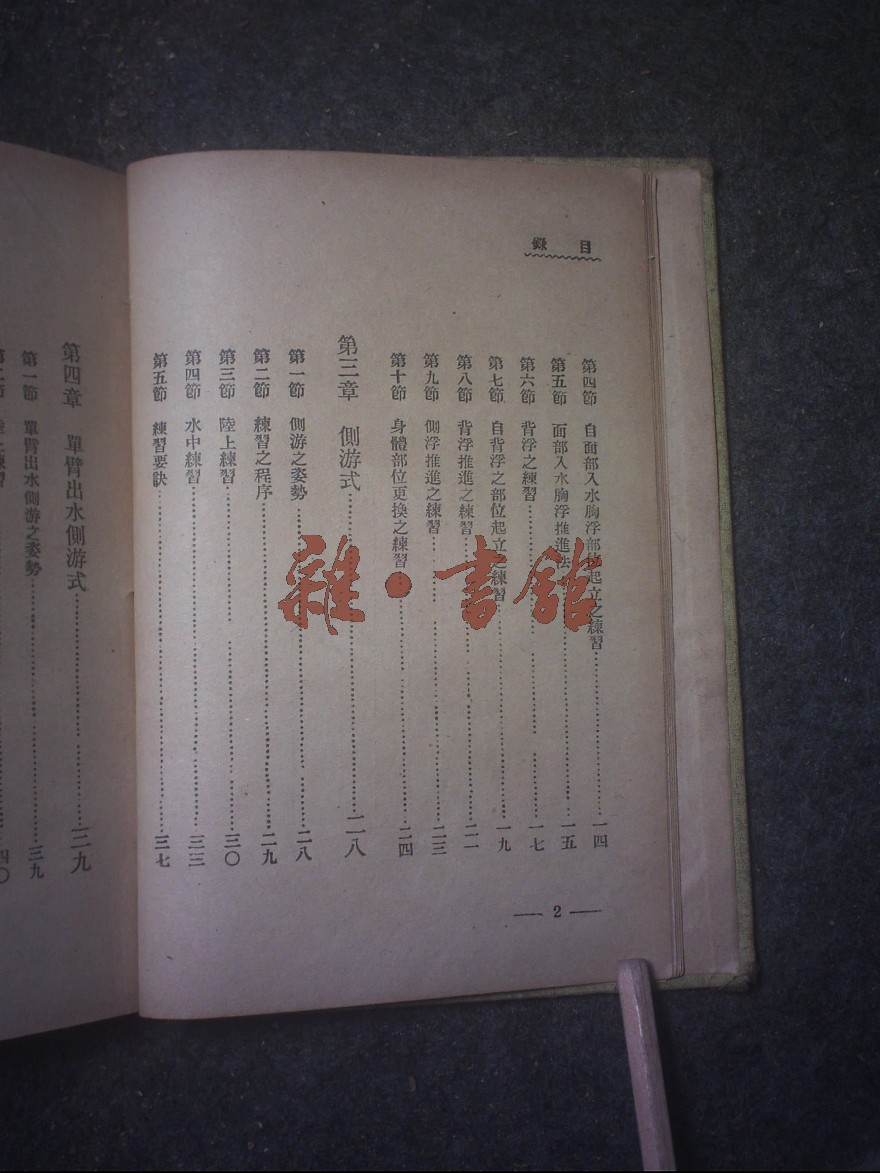 目錄
第四節 自面部入水胸浮部位起立之練習……一四
第五節 面部入水胸浮推進法……一五
第六節 背浮之練習……一七
第七節 自背浮之部位起立之練習……一九
第八節 背浮推進之練習……二一
第九節 側浮推進之練習……二三
第十節 身體部位更換之練習……二四
第三章 側游式……二八
第一節 側游之姿勢……二八
第二節 練習之程序……二九
第三節 陸上練習……三〇
第四節 水中練習……三三
第五節 練習要訣……三七
— 2 —
第四章 單臂出水側游式……三九
第一節 單臂出水側游之姿勢……三九
第二節 陸上練習……四〇
雜·書館